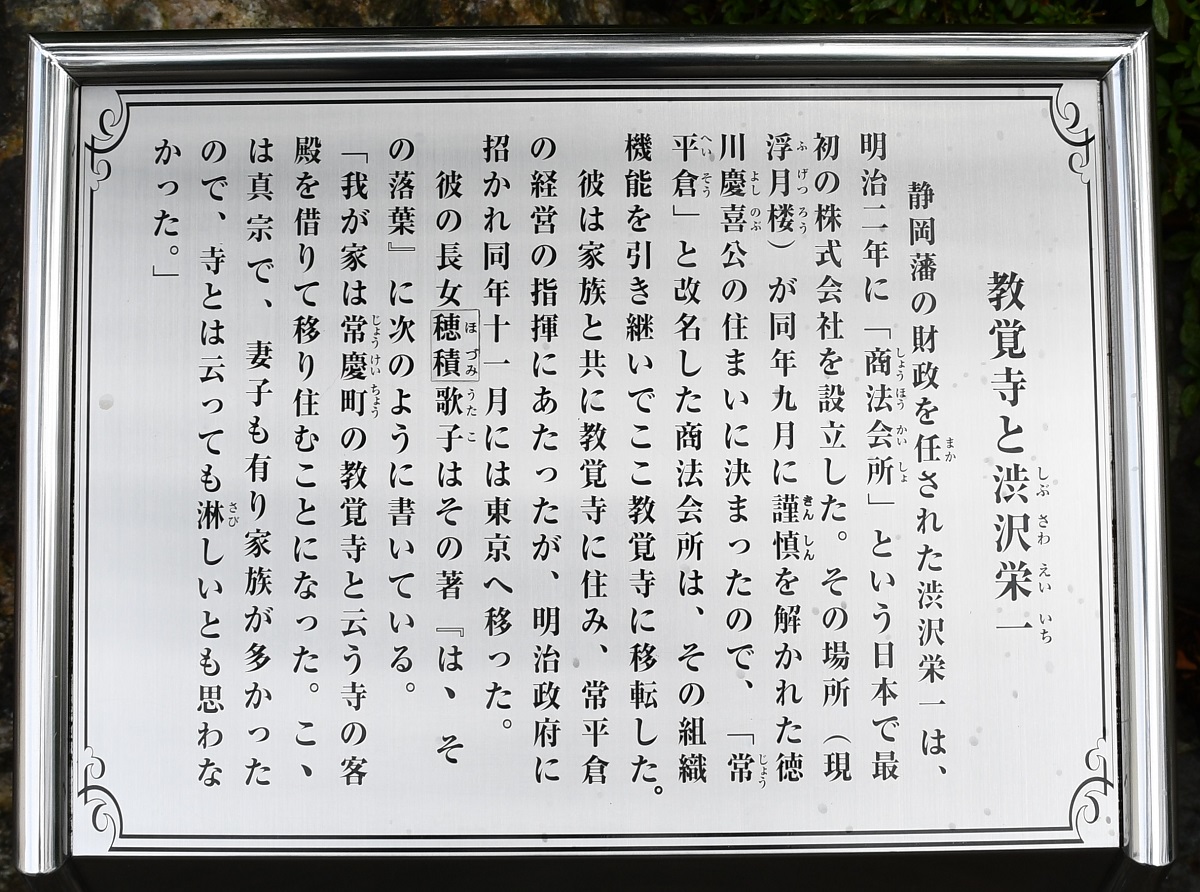 教覚寺と渋沢栄一
静岡藩の財政を任された渋沢栄一は、
明治二年に「商法会所」という日本で最
初の株式会社を設立した。その場所（現
浮月楼）が同年九月に謹慎を解かれた徳
川慶喜公の住まいに決まったので、「常
平倉」と改名した商法会所は、その組織
機能を引き継いでここ教覚寺に移転した。
彼は家族と共に教覚寺に住み、常平倉
の経営の指揮にあたったが、明治政府に
招かれ同年十一月には東京へ移った。
彼の長女穂積歌子はその著『は、そ
の落葉』に次のように書いている。
「我が家は常慶町の教覚寺と云う寺の客
殿を借りて移り住むことになった。こ、
は真宗で、妻子も有り家族が多かった
ので、寺とは云っても淋しいとも思わな
かった。」